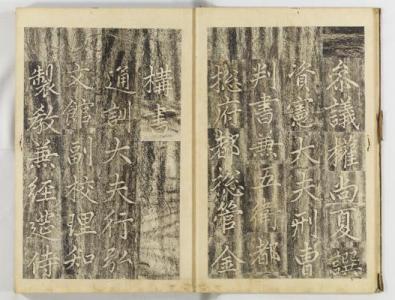 參議權尚夏譔
資憲大夫刑曹
判書兼五衛都
摠府都摠管金
構書
通訓大夫行弘
文館副校理知
製敎兼經筵侍